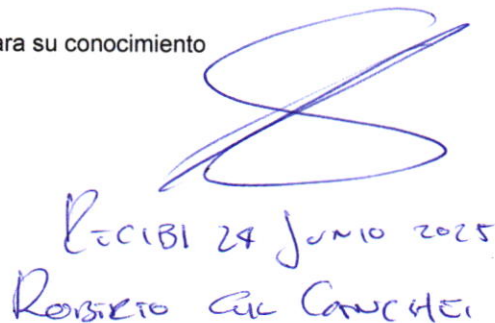 ara su conocimiento
RECIBI 24 JUNIO 2025
ROBERTO